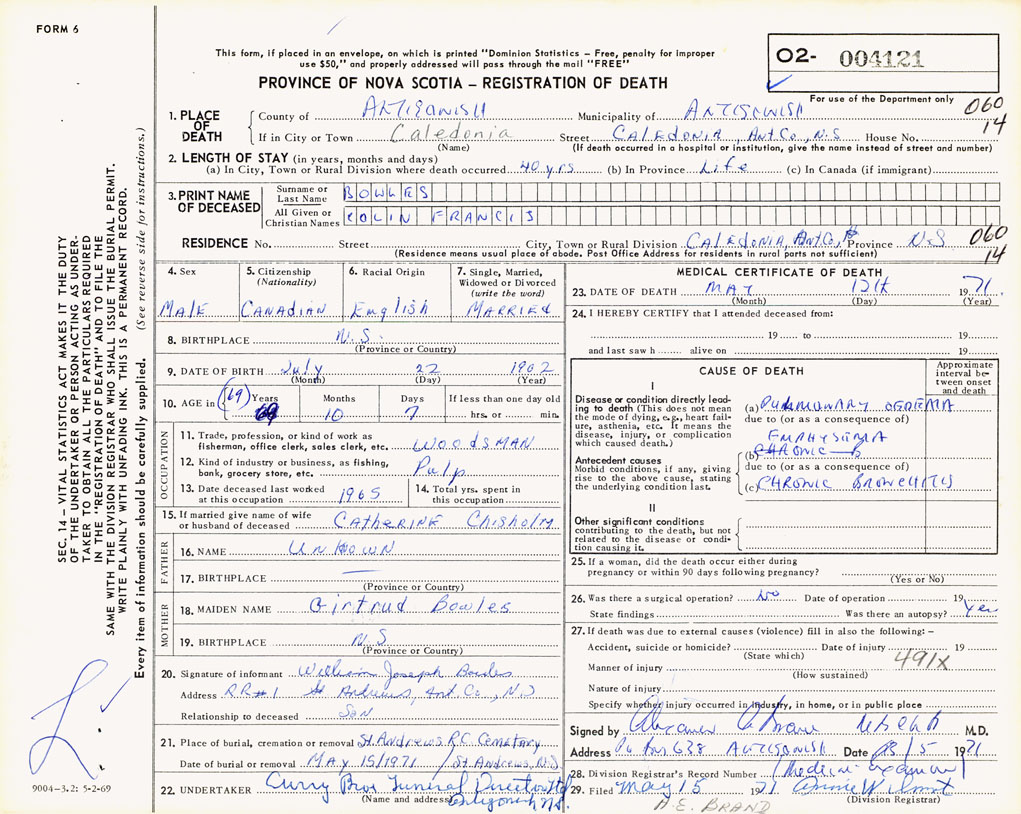 FORM 6
This form, if placed in an envelope, on which is printed "Dominion Statistics – Free, penalty for improper
use $50," and properly addressed will pass through the mail "FREE"
O2- 004121
PROVINCE OF NOVA SCOTIA – REGISTRATION OF DEATH
For use of the Department only
060
14
1. PLACE OF DEATH
County of ANTIGONISH Municipality of ANTIGONISH
If in City or Town Caledonia Street CALEDONIA, Ant Co, N.S House No.
(Name) (If death occurred in a hospital or institution, give the name instead of street and number)
2. LENGTH OF STAY (in years, months and days)
(a) In City, Town or Rural Division where death occurred 40 yrs (b) In Province Life (c) In Canada (if immigrant)
3. PRINT NAME OF DECEASED
Surname or Last Name BOWLES
All Given or Christian Names COLIN FRANCIS
RESIDENCE No. Street City, Town or Rural Division CALEDONIA, Ant Co, Province N.S
060
14
(Residence means usual place of abode. Post Office Address for residents in rural parts not sufficient)
4. Sex MALE
5. Citizenship (Nationality) CANADIAN
6. Racial Origin English
7. Single, Married, Widowed or Divorced (write the word) MARRIED
8. BIRTHPLACE N.S.
(Province or Country)
9. DATE OF BIRTH July 22 1902
(Month) (Day) (Year)
10. AGE in (69) Years Months Days If less than one day old
10 7 hrs. or min.
OCCUPATION
11. Trade, profession, or kind of work as fisherman, office clerk, sales clerk, etc. WOODSMAN
12. Kind of industry or business, as fishing, bank, grocery store, etc. Pulp
13. Date deceased last worked at this occupation 1965
14. Total yrs. spent in this occupation
15. If married give name of wife or husband of deceased CATHERINE Chisholm
FATHER
16. NAME UnKnown
17. BIRTHPLACE —
(Province or Country)
MOTHER
18. MAIDEN NAME Girtrud Bowles
19. BIRTHPLACE N.S
(Province or Country)
20. Signature of informant William Joseph Bowles
Address RR#1 St Andrews, Ant. Co., N.S
Relationship to deceased SON
21. Place of burial, cremation or removal St. Andrews R.C. Cemetary
Date of burial or removal MAY 15/1971 / St. Andrews, N.S
22. UNDERTAKER Curry Bros Funeral Directors Ltd
(Name and address) Antigonish N.S.
MEDICAL CERTIFICATE OF DEATH
23. DATE OF DEATH MAY 12th 1971
(Month) (Day) (Year)
24. I HEREBY CERTIFY that I attended deceased from:
19 to 19
and last saw h alive on 19
CAUSE OF DEATH
Approximate interval between onset and death
I
Disease or condition directly leading to death (This does not mean the mode of dying, e.g., heart failure, asthenia, etc. It means the disease, injury, or complication which caused death.)
(a) PULMONARY OEDEMA
due to (or as a consequence of)
EMPHYSEMA
Antecedent causes
Morbid conditions, if any, giving rise to the above cause, stating the underlying condition last.
(b) CHRONIC B
due to (or as a consequence of)
(c) CHRONIC BRONCHITIS
II
Other significant conditions contributing to the death, but not related to the disease or condition causing it.
25. If a woman, did the death occur either during pregnancy or within 90 days following pregnancy?
(Yes or No)
26. Was there a surgical operation? No Date of operation 19
State findings Was there an autopsy? Yes
27. If death was due to external causes (violence) fill in also the following: –
Accident, suicide or homicide? Date of injury 19
(State which) 491x
Manner of injury
(How sustained)
Nature of injury
Specify whether injury occurred in industry, in home, or in public place
Signed by M.D.
Address Po Box 638 ANTIGONISH Date 13/5 1971
28. Division Registrar's Record Number Medical examiner
29. Filed May 15 1971
(Division Registrar)
A.E. BRAND
SEC. 14 – VITAL STATISTICS ACT MAKES IT THE DUTY
OF THE UNDERTAKER OR PERSON ACTING AS UNDER-
TAKER TO OBTAIN ALL THE PARTICULARS REQUIRED
IN THE "REGISTRATION OF DEATH" AND TO FILE THE
SAME WITH THE DIVISION REGISTRAR WHO SHALL ISSUE THE BURIAL PERMIT.
WRITE PLAINLY WITH UNFADING INK. THIS IS A PERMANENT RECORD.
Every item of information should be carefully supplied. (See reverse side for instructions.)
9004-3.2: 5-2-69